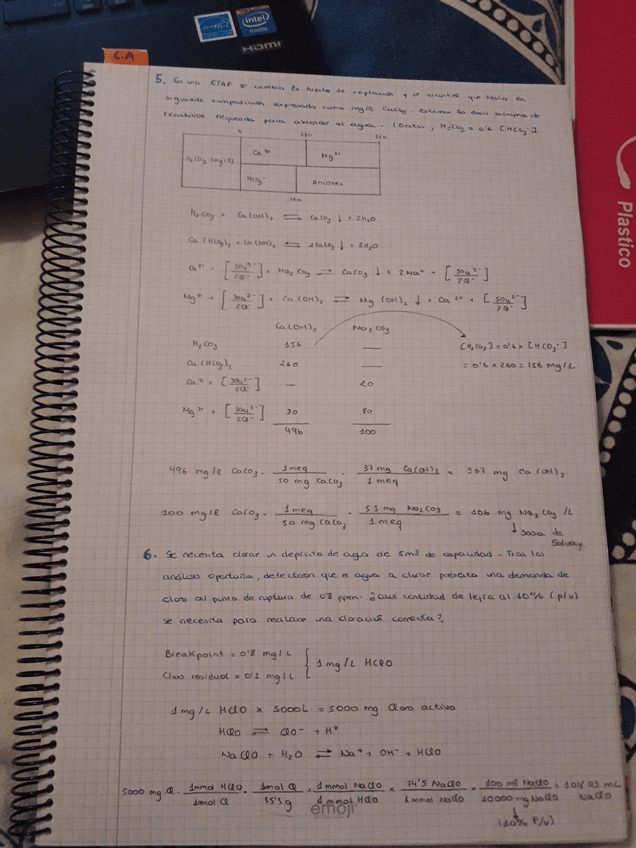 intel
inside
HDMI
C.A
Plastico
5. En una ETAP se cambia la fuente de captación y
siguiente composición expresada como mg/l CaCO3. estimar la dosis mínima de
reactivos requerida para ablandar el agua. (Dato: H2CO3 = 0'6 [HCO3-]
H2CO3 (mg/l) Ca2+ Mg2+
HCO3- aniones
260
H2CO3 + Ca(OH)2 ⇌ CaCO3 ↓ + 2H2O
Ca(HCO3)2 + Ca(OH)2 ⇌ 2CaCO3 ↓ + 2H2O
Ca2+ + [SO4 2-/2Cl-] + Na2CO3 ⇌ CaCO3 ↓ + 2Na+ + [SO4 2-/2Cl-]
Mg2+ + [SO4 2-/2Cl-] + Ca(OH)2 ⇌ Mg(OH)2 ↓ + Ca2+ + [SO4 2-/2Cl-]
Ca(OH)2 Na2CO3
H2CO3 156 — [H2CO3] = 0'6 x [HCO3-]
Ca(HCO3)2 260 — = 0'6 x 260 = 156 mg/L
Ca2+ + [SO4 2-/2Cl-] — 20
Mg2+ + [SO4 2-/2Cl-] 80 80
496 100
496 mg/l CaCO3 · 1meq/50 mg CaCO3 · 37 mg Ca(OH)2/1 meq = 367 mg Ca(OH)2
100 mg/l CaCO3 · 1meq/50 mg CaCO3 · 53 mg Na2CO3/1meq = 106 mg Na2CO3/L
↓ sosa de
Solvay
6. Se necesita clorar un depósito de agua de 5m3 de capacidad. Tras los
análisis oportunos, detectaron que el agua a clorar presenta una demanda de
cloro al punto de ruptura de 0'8 ppm. ¿Qué cantidad de lejía al 10% (p/v)
se necesita para realizar una cloración correcta?
Breakpoint = 0'8 mg/L
Cloro residual = 0'2 mg/L } 1 mg/L HClO
1 mg/L HClO x 5000L = 5000 mg Cloro activo
HClO ⇌ ClO- + H+
NaClO + H2O ⇌ Na+ + OH- + HClO
5000 mg Cl · 1mmol HClO/1mol Cl · 1mol Cl/35'5g · 1 mmol NaClO/1 mmol HClO · 74'5 NaClO/1 mmol NaClO · 100 ml NaClO/10000 mg NaClO = mL NaClO
↓
(10% P/v)
emoji